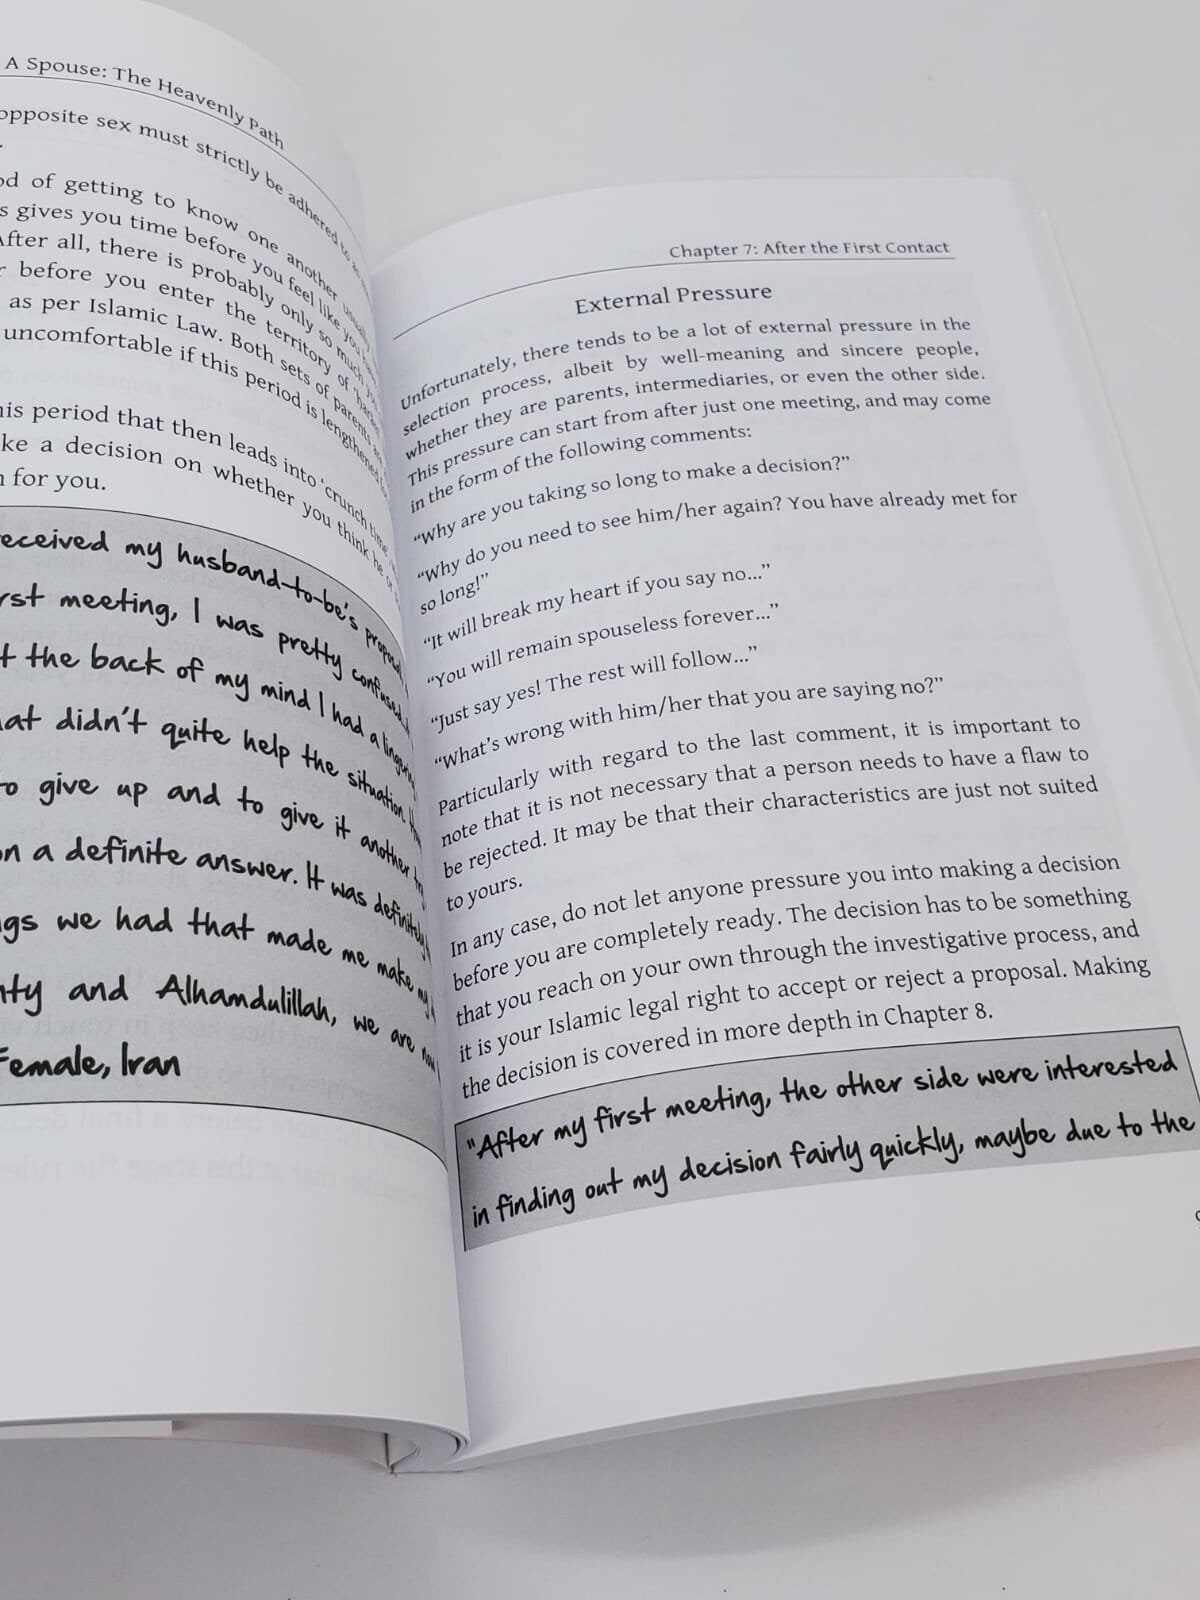 A Spouse: The Heavenly Path
opposite sex must strictly be adhered to
of getting to know one another usually
gives you time before you feel like you
After all, there is probably only so much you
before you enter the territory of
as per Islamic Law. Both sets of parents
uncomfortable if this period is lengthened
this period that then leads into ‘crunch time
a decision on whether you think he or
for you.
received my husband-to-be's proposal
first meeting, I was pretty confused
the back of my mind I had a lingering
that didn't quite help the situation.
to give up and to give it another try
on a definite answer. It was definitely
we had that made me make my
and Alhamdulillah, we are now
Female, Iran
Chapter 7: After the First Contact
External Pressure
Unfortunately, there tends to be a lot of external pressure in the
selection process, albeit by well-meaning and sincere people,
whether they are parents, intermediaries, or even the other side.
This pressure can start from after just one meeting, and may come
in the form of the following comments:
“Why are you taking so long to make a decision?”
“Why do you need to see him/her again? You have already met for
so long!”
“It will break my heart if you say no...”
“You will remain spouseless forever...”
“Just say yes! The rest will follow...”
“What’s wrong with him/her that you are saying no?”
Particularly with regard to the last comment, it is important to
note that it is not necessary that a person needs to have a flaw to
be rejected. It may be that their characteristics are just not suited
to yours.
In any case, do not let anyone pressure you into making a decision
before you are completely ready. The decision has to be something
that you reach on your own through the investigative process, and
it is your Islamic legal right to accept or reject a proposal. Making
the decision is covered in more depth in Chapter 8.
"After my first meeting, the other side were interested
in finding out my decision fairly quickly, maybe due to the